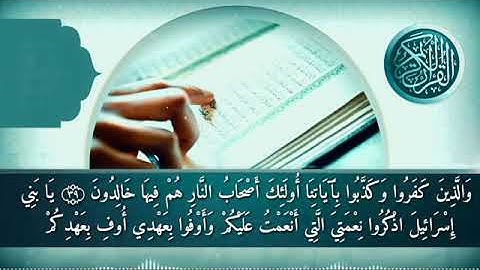 القرآن الكريم
وَالَّذِينَ كَفَرُوا وَكَذَّبُوا بِآيَاتِنَا أُولَئِكَ أَصْحَابُ النَّارِ هُمْ فِيهَا خَالِدُونَ ﴿٣٩﴾ يَا بَنِي
إِسْرَائِيلَ اذْكُرُوا نِعْمَتِيَ الَّتِي أَنْعَمْتُ عَلَيْكُمْ وَأَوْفُوا بِعَهْدِي أُوفِ بِعَهْدِكُمْ